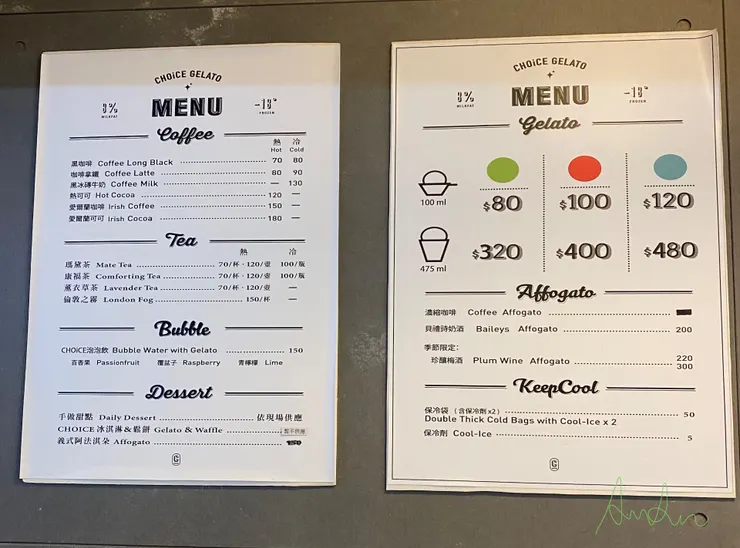 CHOiCE GELATO
3%
MILKFAT
MENU
-13°
FROZEN
Coffee
熱 冷
Hot Cold
黑咖啡 Coffee Long Black 70 80
咖啡拿鐵 Coffee Latte 80 90
黑冰磚牛奶 Coffee Milk — 130
熱可可 Hot Cocoa 120 —
愛爾蘭咖啡 Irish Coffee 150 —
愛爾蘭可可 Irish Cocoa 180 —
Tea
熱 冷
瑪黛茶 Mate Tea 70/杯·120/壺 100/瓶
康福茶 Comforting Tea 70/杯·120/壺 100/瓶
薰衣草茶 Lavender Tea 70/杯·120/壺 —
倫敦之霧 London Fog 150/杯 —
Bubble
CHOiCE泡泡飲 Bubble Water with Gelato 150
百香果 Passionfruit 覆盆子 Raspberry 青檸檬 Lime
Dessert
手做甜點 Daily Dessert 依現場供應
CHOICE冰淇淋&鬆餅 Gelato & Waffle 暫不供應
義式阿法淇朵 Affogato 150
CHOiCE GELATO
3%
MILKFAT
MENU
-13°
FROZEN
Gelato
100 ml $80 $100 $120
475 ml $320 $400 $480
Affogato
濃縮咖啡 Coffee Affogato
貝禮詩奶酒 Baileys Affogato 200
季節限定:
珍釀梅酒 Plum Wine Affogato 220
300
KeepCool
保冷袋 (含保冷劑x2) 50
Double Thick Cold Bags with Cool-Ice x 2
保冷劑 Cool-Ice 5